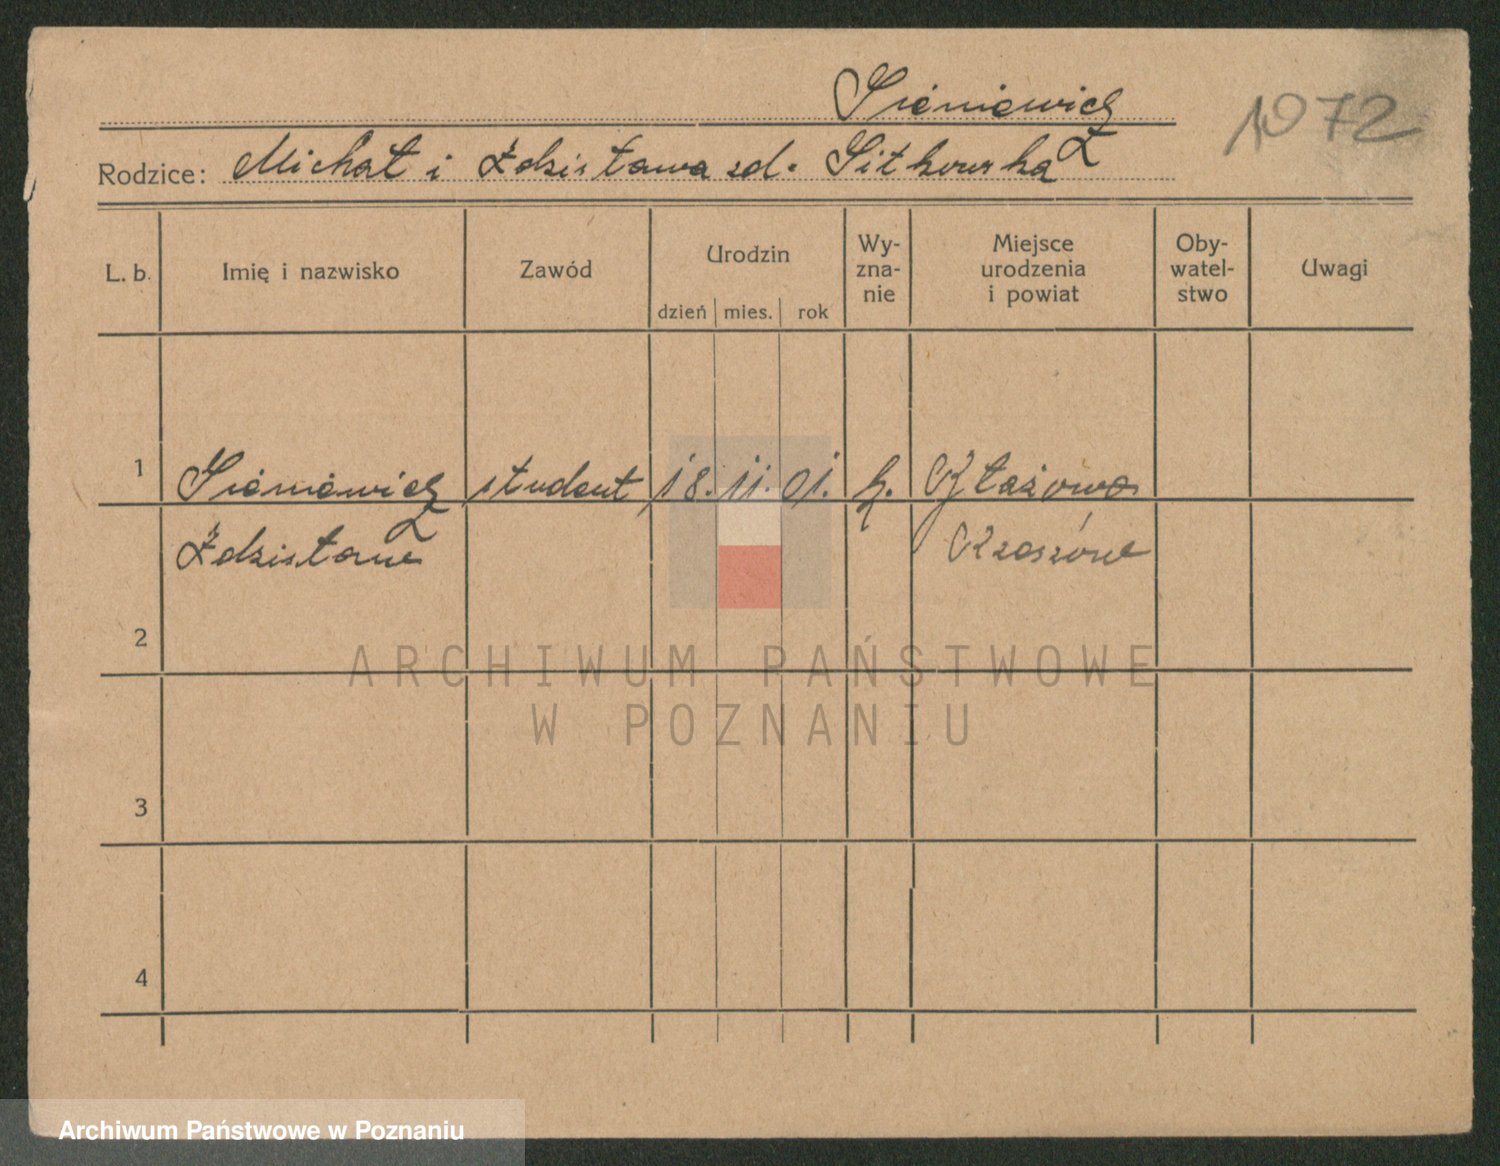 Sieniewicz
1972
Rodzice: Michał i Zdzisława zd. Sitkowska
L. b. Imię i nazwisko Zawód Urodzin dzień mies. rok Wy-zna-nie Miejsce urodzenia i powiat Oby-watel-stwo Uwagi
1 Sieniewicz student 18. 11. 01. k.
Zdzisław Rzeszów
2
3
4
ARCHIWUM PAŃSTWOWE
W POZNANIU
Archiwum Państwowe w Poznaniu